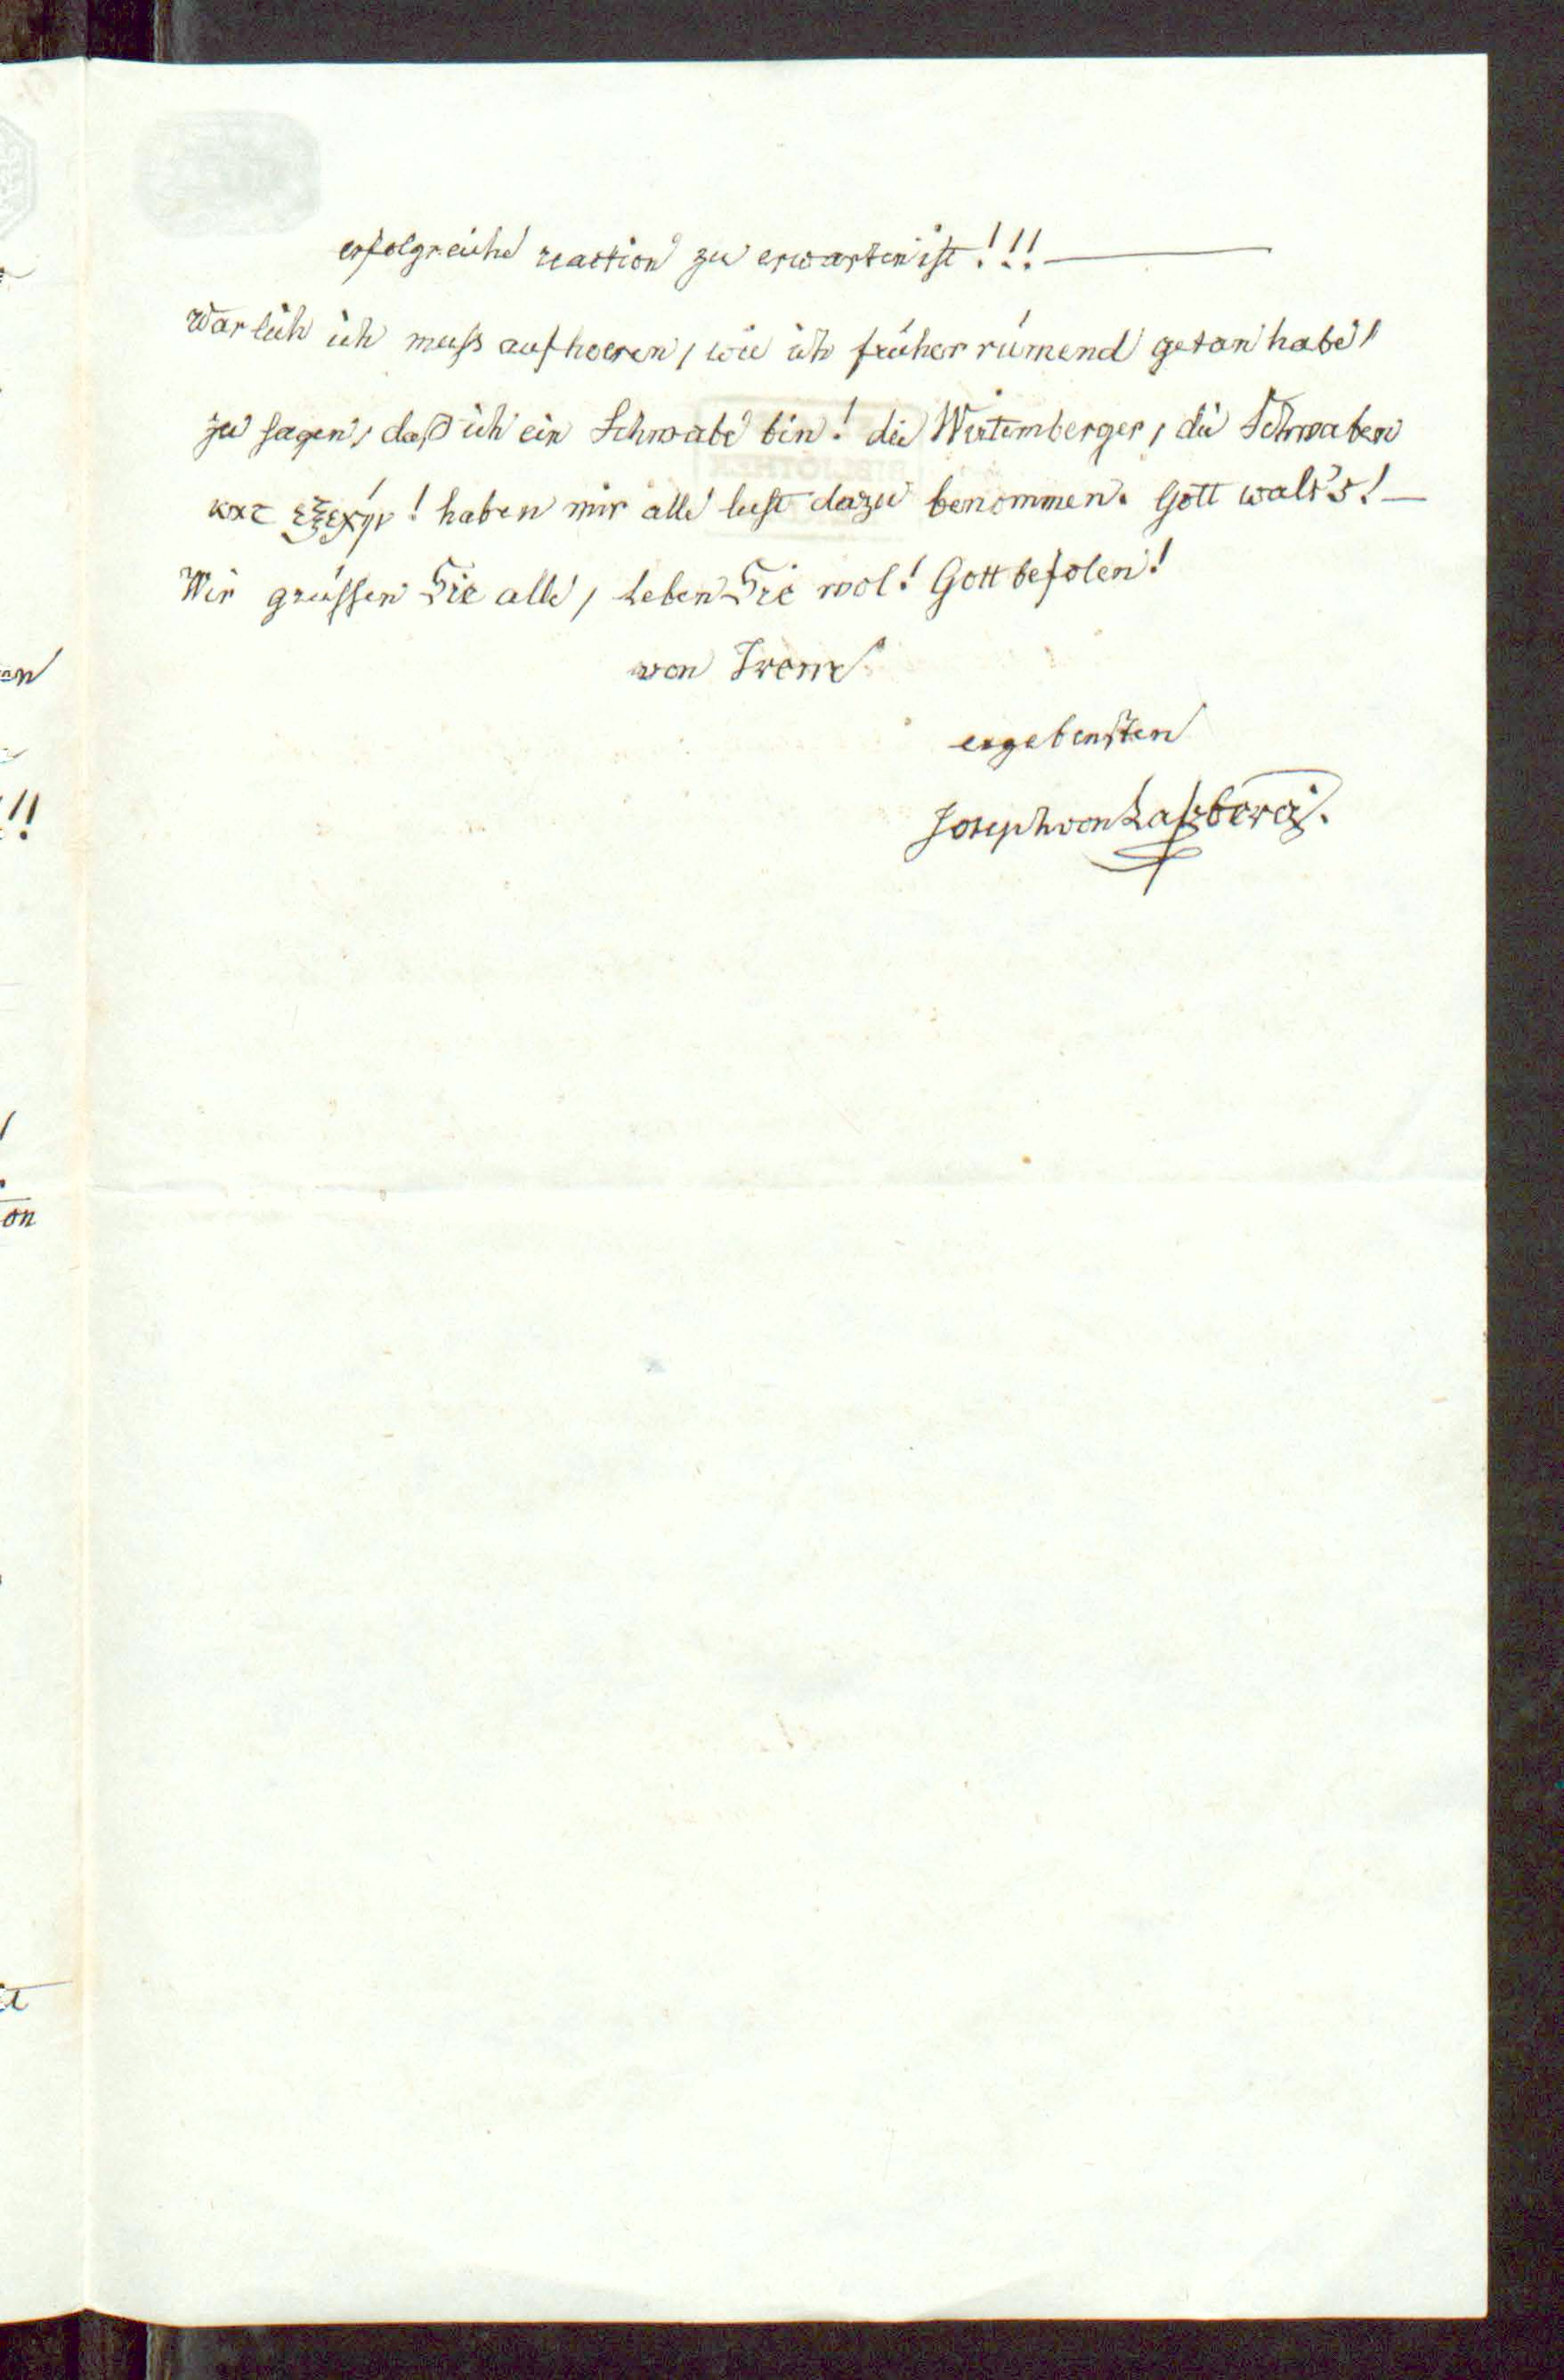 erfolgreiche reaction zu erwarten ist!!! —
warlich ich muss aufhoeren, wie ich früher rümend getan habe,
zu sagen, daß ich ein Schwabe bin! die Wirtemberger, die Schwaben
κατ εξεχήν! haben mir alle lust dazu benommen. Gott walt's! —
Wir grüssen Sie alle, Leben Sie wol! Gott befolen!
von Irem
ergebensten
Joseph von Laßberg.